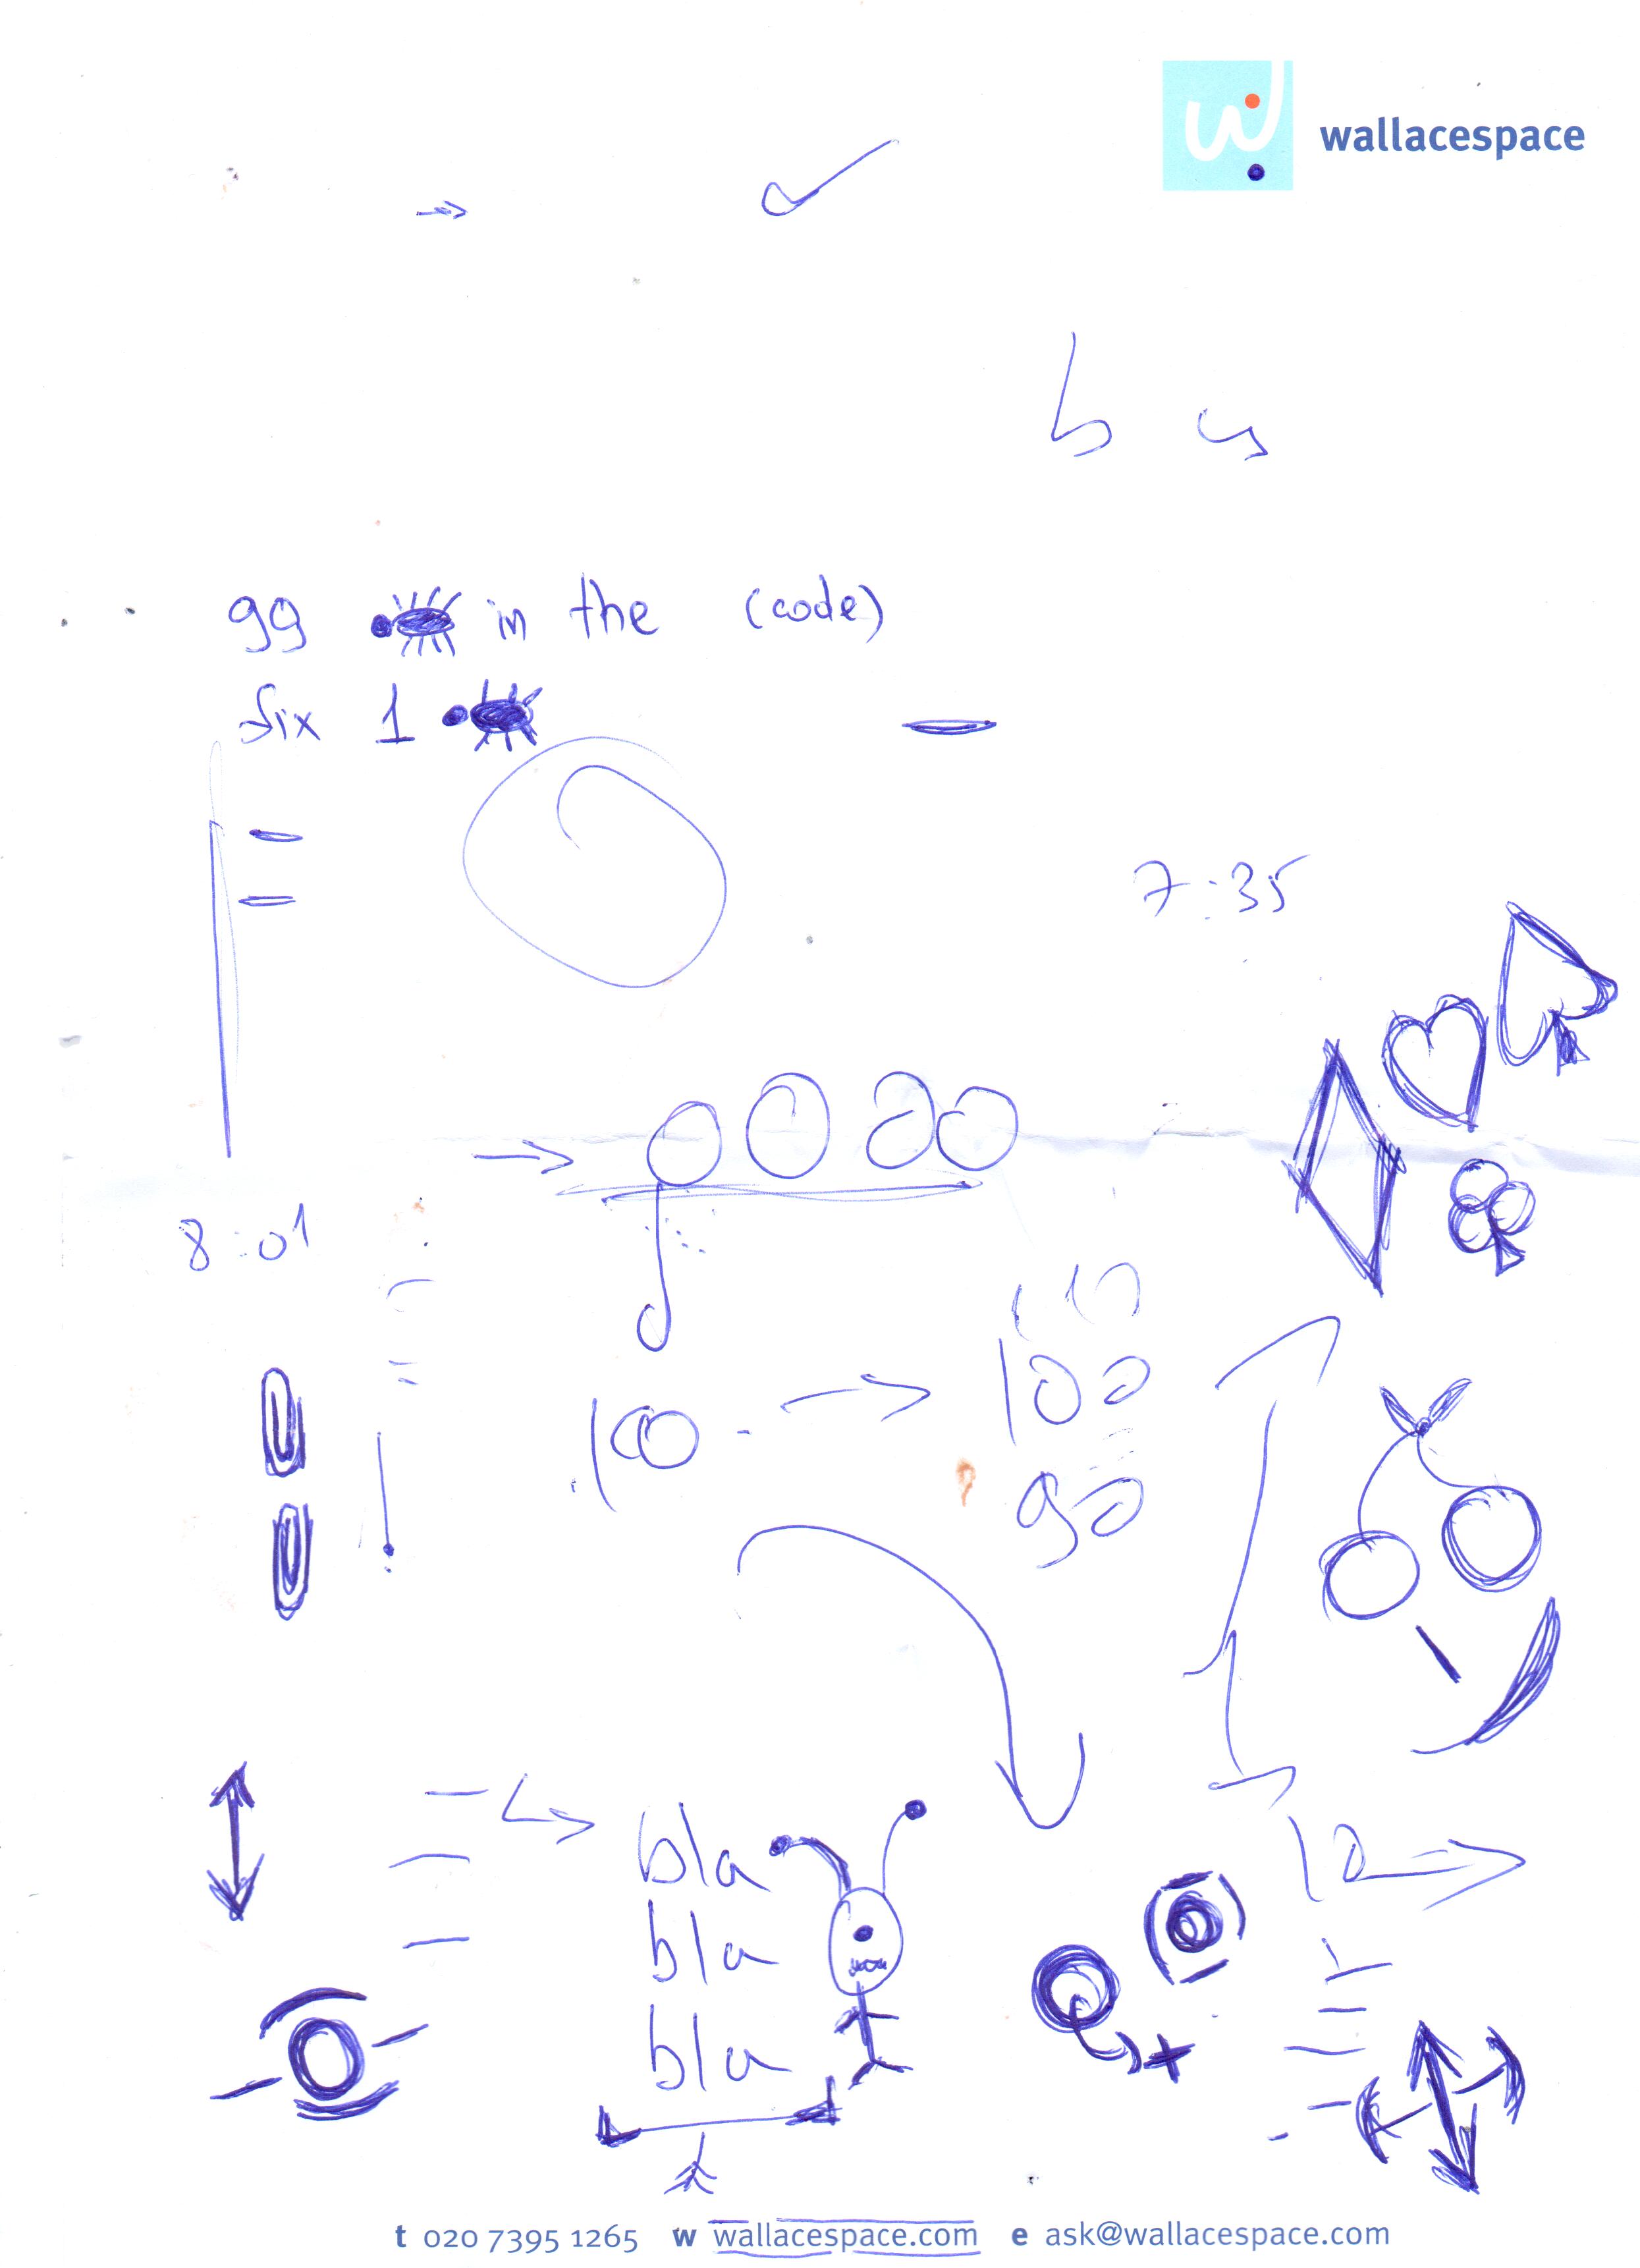 wallacespace
99 in the (code)
fix 1
7:35
8:01
100
100
90
bla
bla
bla
t 020 7395 1265 w wallacespace.com e ask@wallacespace.com